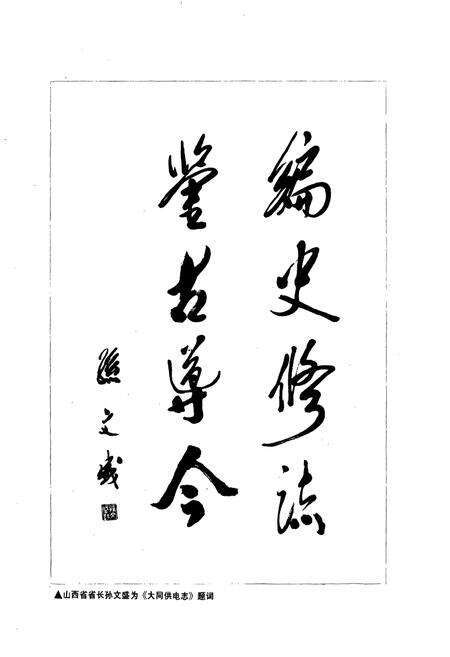 编史修誌
鉴古導今
孫文盛
▲山西省省长孙文盛为《大同供电志》题词